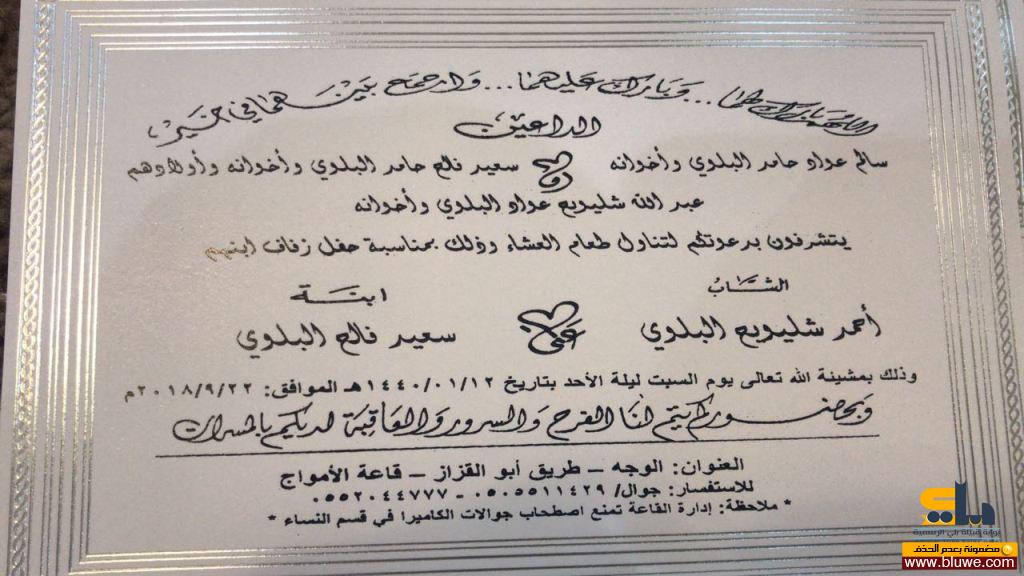 اللهم بارك لهما ... وبارك عليهما ... واجمع بينهما في خير
الداعين
سالم عواد حامد البلوي وأخوانه
و
سعيد فالح حامد البلوي وأخوانه وأولادهم
عبد الله شليويح عواد البلوي وأخوانه
يتشرفون بدعوتكم لتناول طعام العشاء وذلك بمناسبة حفل زفاف ابنهم
الشاب
ابنة
أحمد شليويح البلوي
على
سعيد فالح البلوي
وذلك بمشيئة الله تعالى يوم السبت ليلة الأحد بتاريخ ١٤٤٠/٠١/١٢هـ الموافق: ٢٠١٨/٩/٢٢م
وبحضوركم يتم لنا الفرح والسرور والعاقبة لديكم بالمسرات
العنوان: الوجه – طريق أبو القزاز – قاعة الأمواج
للاستفسار: جوال/ ٠٥٠٥٥١١٤٢٩ - ٠٥٥٢٠٤٤٧٧٧
* ملاحظة: إدارة القاعة تمنع اصطحاب جوالات الكاميرا في قسم النساء *
بلي
بوابة قبيلة بلي الرسمية
مضمونة بعدم الحذف
www.bluwe.com